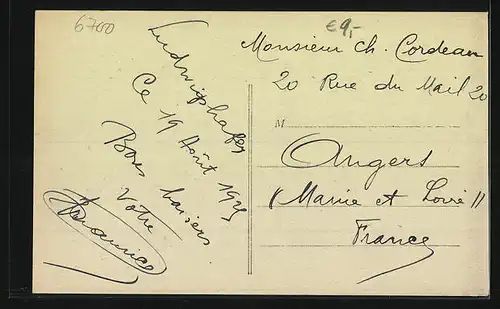 6700
€9,-
Ludwigshafen
Ce 19 Août 1925
Bons baisers
Votre
Maurice
Monsieur Ch. Cordeau
20 Rue du Mail 20
M
Angers
(Maine et Loire)
France